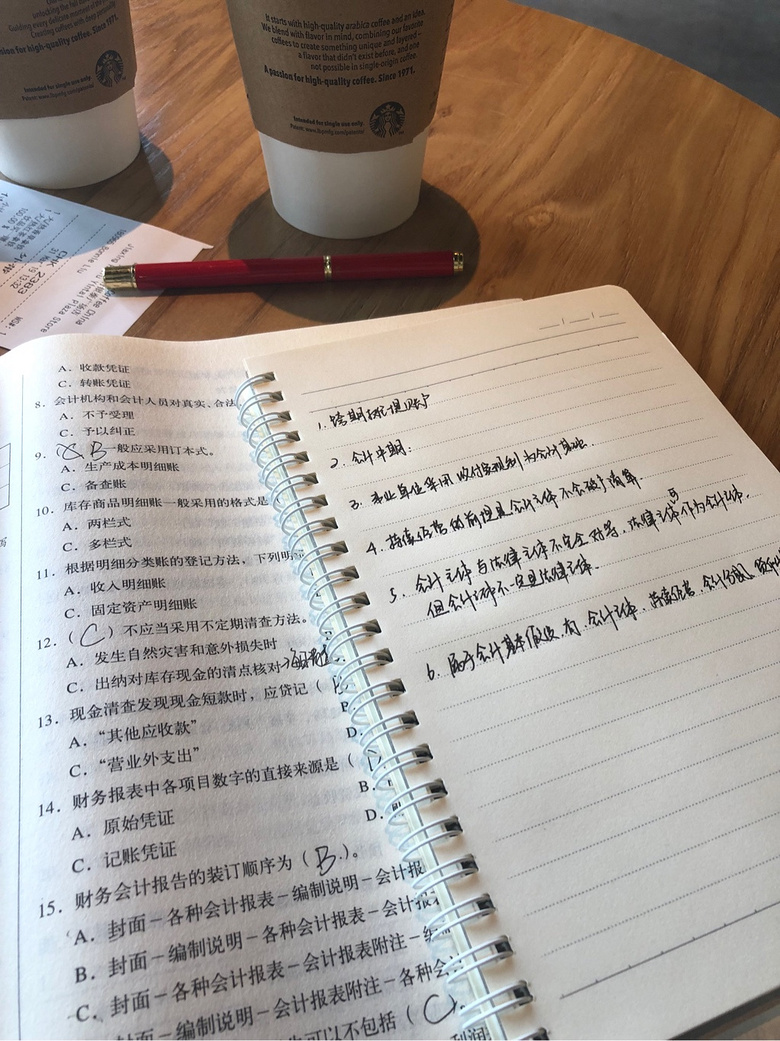 It starts with high-quality arabica coffee and an idea.
We blend with flavor in mind, combining our favorite
coffees to create something unique and layered –
a flavor that didn't exist before, and one
not possible in single-origin coffee.
A passion for high-quality coffee. Since 1971.
Intended for single use only.
Guiding every delicate moment of
Creating coffees with deep
sion for high-quality coffee. Since 1971.
Intended for single use only.
CHK 2383
Plaza Store
A. 收款凭证
C. 转账凭证
8. 会计机构和会计人员对真实、合法
A. 不予受理
C. 予以纠正
9. B 一般应采用订本式。
A. 生产成本明细账
C. 备查账
10. 库存商品明细账一般采用的格式是
A. 两栏式
C. 多栏式
11. 根据明细分类账的登记方法，下列明
A. 收入明细账
C. 固定资产明细账
12. ( C ) 不应当采用不定期清查方法。
A. 发生自然灾害和意外损失时
C. 出纳对库存现金的清点核对
13. 现金清查发现现金短款时，应贷记（
A. “其他应收款”
C. “营业外支出”
14. 财务报表中各项目数字的直接来源是（
A. 原始凭证
B.
C. 记账凭证
D.
15. 财务会计报告的装订顺序为（ B ）。
A. 封面－各种会计报表－编制说明－会计报
B. 封面－编制说明－各种会计报表－会计报
C. 封面－各种会计报表－会计报表附注－编
封面－编制说明－会计报表附注－各种会
可以不包括（ C ）。
利润
1. 跨期摊提账户
2. 会计中期：
3. 事业单位等用收付实现制为会计基础.
4. 持续经营的前提是会计主体不会破产清算.
5. 会计主体与法律主体不完全对等, 法律主体可作为会计主体,
但会计主体不一定是法律主体.
6. 属于会计基本假设有: 会计主体、持续经营、会计分期、货币